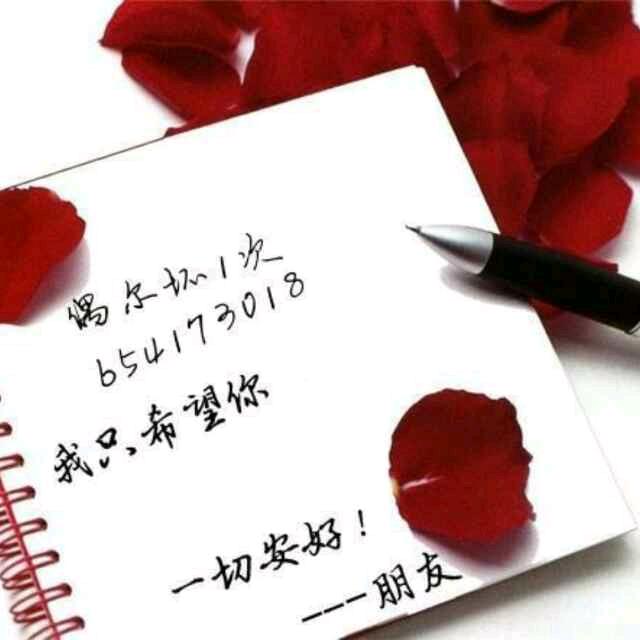 偶尔坏1次
654173018
我只希望你
一切安好！
---朋友